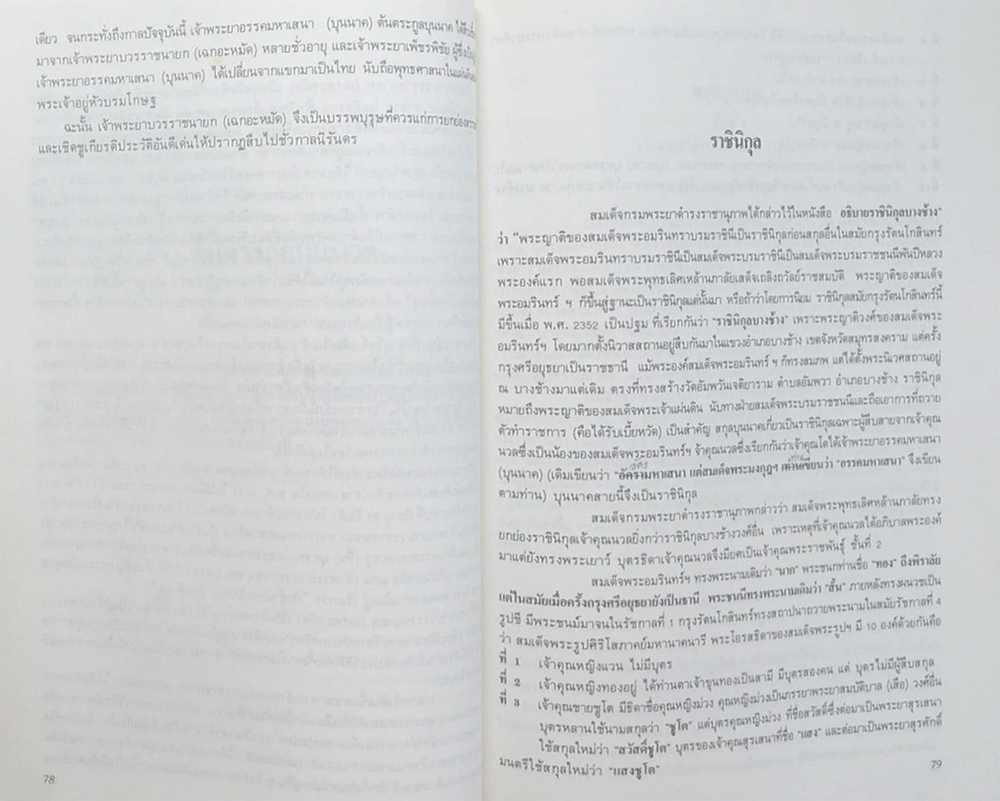 เดียว จนกระทั่งถึงกาลปัจจุบันนี้ เจ้าพระยาอรรคมหาเสนา (บุนนาค) ต้นตระกูลบุนนาค ได้สืบ
มาจากเจ้าพระยาบวรราชนายก (เฉกอะหมัด) หลายชั่วอายุ และเจ้าพระยาเพ็ชรพิชัย
เจ้าพระยาอรรคมหาเสนา (บุนนาค) ได้เปลี่ยนจากแขกมาเป็นไทย นับถือพุทธศาสนาในแผ่นดิน
พระเจ้าอยู่หัวบรมโกษฐ
ฉะนั้น เจ้าพระยาบวรราชนายก (เฉกอะหมัด) จึงเป็นบรรพบุรุษที่ควรแก่การยกย่อง
และเชิดชูเกียรติประวัติอันดีเด่นให้ปรากฏสืบไปชั่วกาลนิรันดร
78
ราชินิกุล
สมเด็จกรมพระยาดำรงราชานุภาพได้กล่าวไว้ในหนังสือ อธิบายราชินิกุลบางช้าง"
ว่า "พระญาติของสมเด็จพระอมรินทราบรมราชินีเป็นราชินิกุลก่อนสกุลอื่นในสมัยกรุงรัตนโกสินทร์
เพราะสมเด็จพระอมรินทราบรมราชินีเป็นสมเด็จพระบรมราชินีเป็นสมเด็จพระบรมราชชนนีพันปีหลวง
พระองค์แรก พอสมเด็จพระพุทธเลิศหล้านภาลัยเสด็จเถลิงถวัลย์ราชสมบัติ พระญาติของสมเด็จ
พระอมรินทร์ ฯ ก็ขึ้นสู่ฐานะเป็นราชินิกุลแต่นั้นมา หรือถ้าว่าโดยการนิยม ราชินิกุลสมัยกรุงรัตนโกสินทร์นี้
มีขึ้นเมื่อ พ.ศ. 2352 เป็นปฐม ที่เรียกกันว่า "ราชินิกุลบางช้าง" เพราะพระญาติวงศ์ของสมเด็จพระ
อมรินทร์ฯ โดยมากตั้งนิวาสสถานอยู่สืบกันมาในแขวงอำเภอบางช้าง เขตจังหวัดสมุทรสงคราม แต่ครั้ง
กรุงศรีอยุธยาเป็นราชธานี แม้พระองค์สมเด็จพระอมรินทร์ ฯ ก็ทรงสมภพ แต่ได้ตั้งพระนิเวศสถานอยู่
ณ บางช้างมาแต่เดิม ตรงที่ทรงสร้างวัดอัมพวันเจติยาราม ตำบลอัมพวา อำเภอบางช้าง ราชินิกุล
หมายถึงพระญาติของสมเด็จพระเจ้าแผ่นดิน นับทางฝ่ายสมเด็จพระบรมราชชนนีและถือเอาการที่ถวาย
ตัวทำราชการ (คือได้รับเบี้ยหวัด) เป็นสำคัญ สกุลบุนนาคเกี่ยวเป็นราชินิกุลเฉพาะผู้สืบสายจากเจ้าคุณ
นวลซึ่งเป็นน้องของสมเด็จพระอมรินทร์ฯ จ้าคุณนวลซึ่งเรียกกันว่าเจ้าคุณโตได้เจ้าพระยาอรรคมหาเสนา
(บุนนาค) (เดิมเขียนว่า "อัครมหาเสนา แต่สมเด็จพระมงกุฎฯ ท่านเขียนว่า "อรรคมหาเสนา" จึงเขียน
ตามท่าน) บุนนาคสายนี้จึงเป็นราชินิกุล
สมเด็จกรมพระยาดำรงราชานุภาพกล่าวว่า สมเด็จพระพุทธเลิศหล้านภาลัยทรง
ยกย่องราชินิกุลเจ้าคุณนวลยิ่งกว่าราชินิกุลบางช้างวงศ์อื่น เพราะเหตุที่เจ้าคุณนวลได้อภิบาลพระองค์
มาแต่ยังทรงพระเยาว์ บุตรธิดาเจ้าคุณนวลจึงมียศเป็นเจ้าคุณพระราชพันธุ์ ชั้นที่ 2
สมเด็จพระอมรินทร์ฯ ทรงพระนามเดิมว่า "นาก" พระชนกท่านชื่อ "ทอง" ถึงพิราลัย
แต่ในสมัยเมื่อครั้งกรุงศรีอยุธยายังเป็นธานี พระชนนีทรงพระนามเดิมว่า "สั้น" ภายหลังทรงผนวชเป็น
รูปชี มีพระชนม์มาจนในรัชกาลที่ 1 กรุงรัตนโกสินทร์ทรงสถาปนาถวายพระนามในสมัยรัชกาลที่ 4
ว่า สมเด็จพระรูปศิริโสภาคย์มหานาคนารี พระโอรสธิดาของสมเด็จพระรูปฯ มี 10 องค์ด้วยกันคือ
ที่ 1 เจ้าคุณหญิงแวน ไม่มีบุตร
ที่ 2 เจ้าคุณหญิงทองอยู่ ได้ท่านตาเจ้าขุนทองเป็นสามี มีบุตรสองคน แต่ บุตรไม่มีผู้สืบสกุล
ที่ 3 เจ้าคุณชายชูโต มีธิดาชื่อคุณหญิงม่วง คุณหญิงม่วงเป็นภรรยาพระยาสมบัติบาล (เสือ) วงศ์อื่น
บุตรหลานใช้นามสกุลว่า "ชูโต" แต่บุตรคุณหญิงม่วง ที่ชื่อสวัสดิ์ซึ่งต่อมาเป็นพระยาสุรเสนา
ใช้สกุลใหม่ว่า "สวัสดิ์ชูโต" บุตรของเจ้าคุณสุรเสนาที่ชื่อ "แสง" และต่อมาเป็นพระยาสุรศักดิ์
มนตรีใช้สกุลใหม่ว่า "แสงชูโต"
79